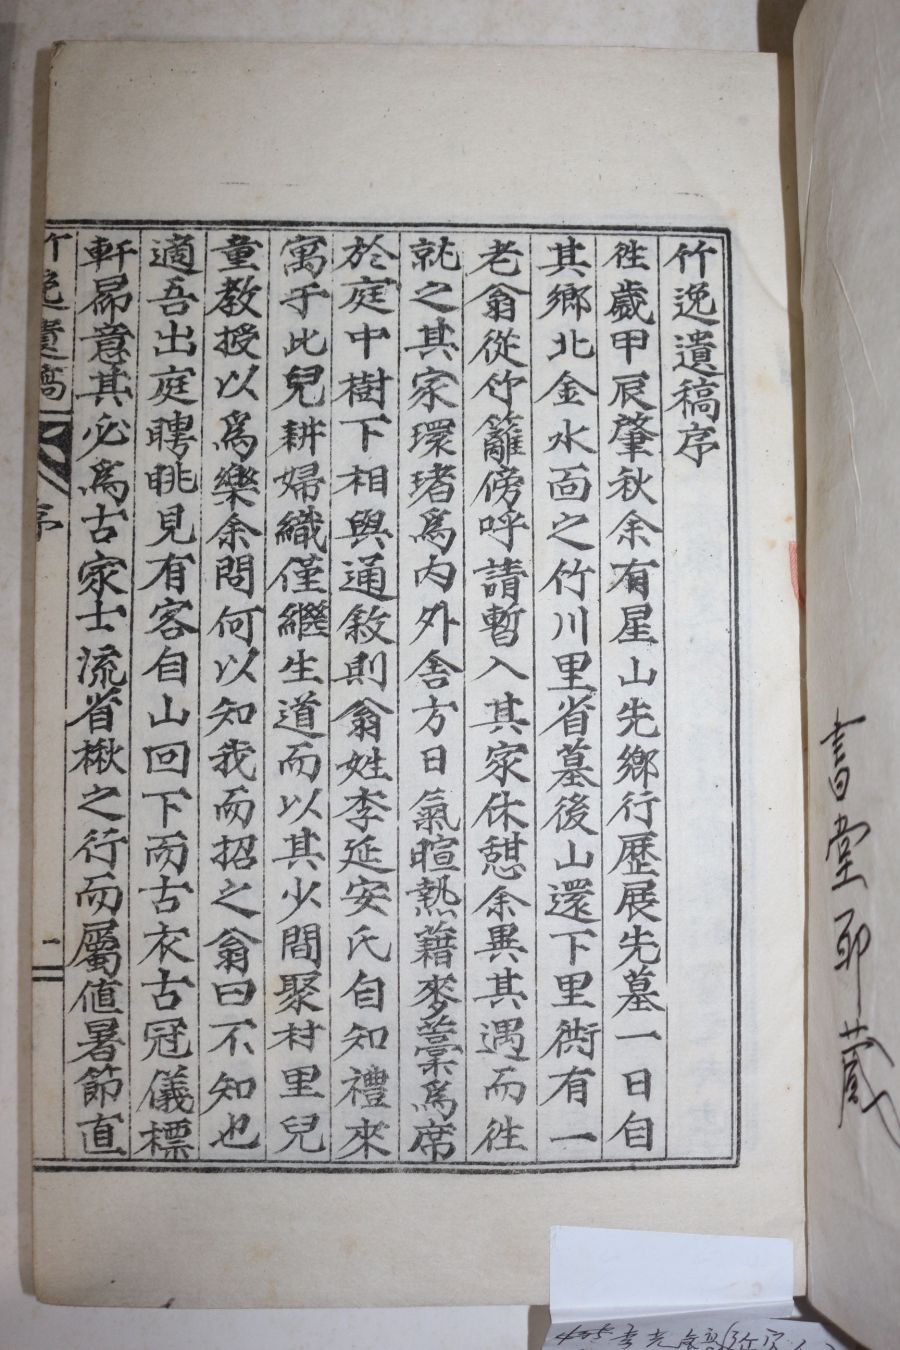 竹逸遺稿序
徃歲甲辰肇秋余有星山先鄉行歷展先墓一日自
其鄉北金水面之竹川里省墓後山還下里衖有一
老翁從竹籬傍呼請暫入其家休憩余異其遇而徃
就之其家環堵爲內外舍方日氣暄熱藉麥藁爲席
於庭中樹下相與通敘則翁姓李延安氏自知禮來
寓于此兒耕婦織僅繼生道而以其少間聚村里兒
童教授以爲樂余問何以知我而招之翁曰不知也
適吾出庭聘眺見有客自山回下而古衣古冠儀標
軒昴意其必爲古家士流省楸之行而屬値暑節直
竹逸遺稿 序 一
書堂 藏